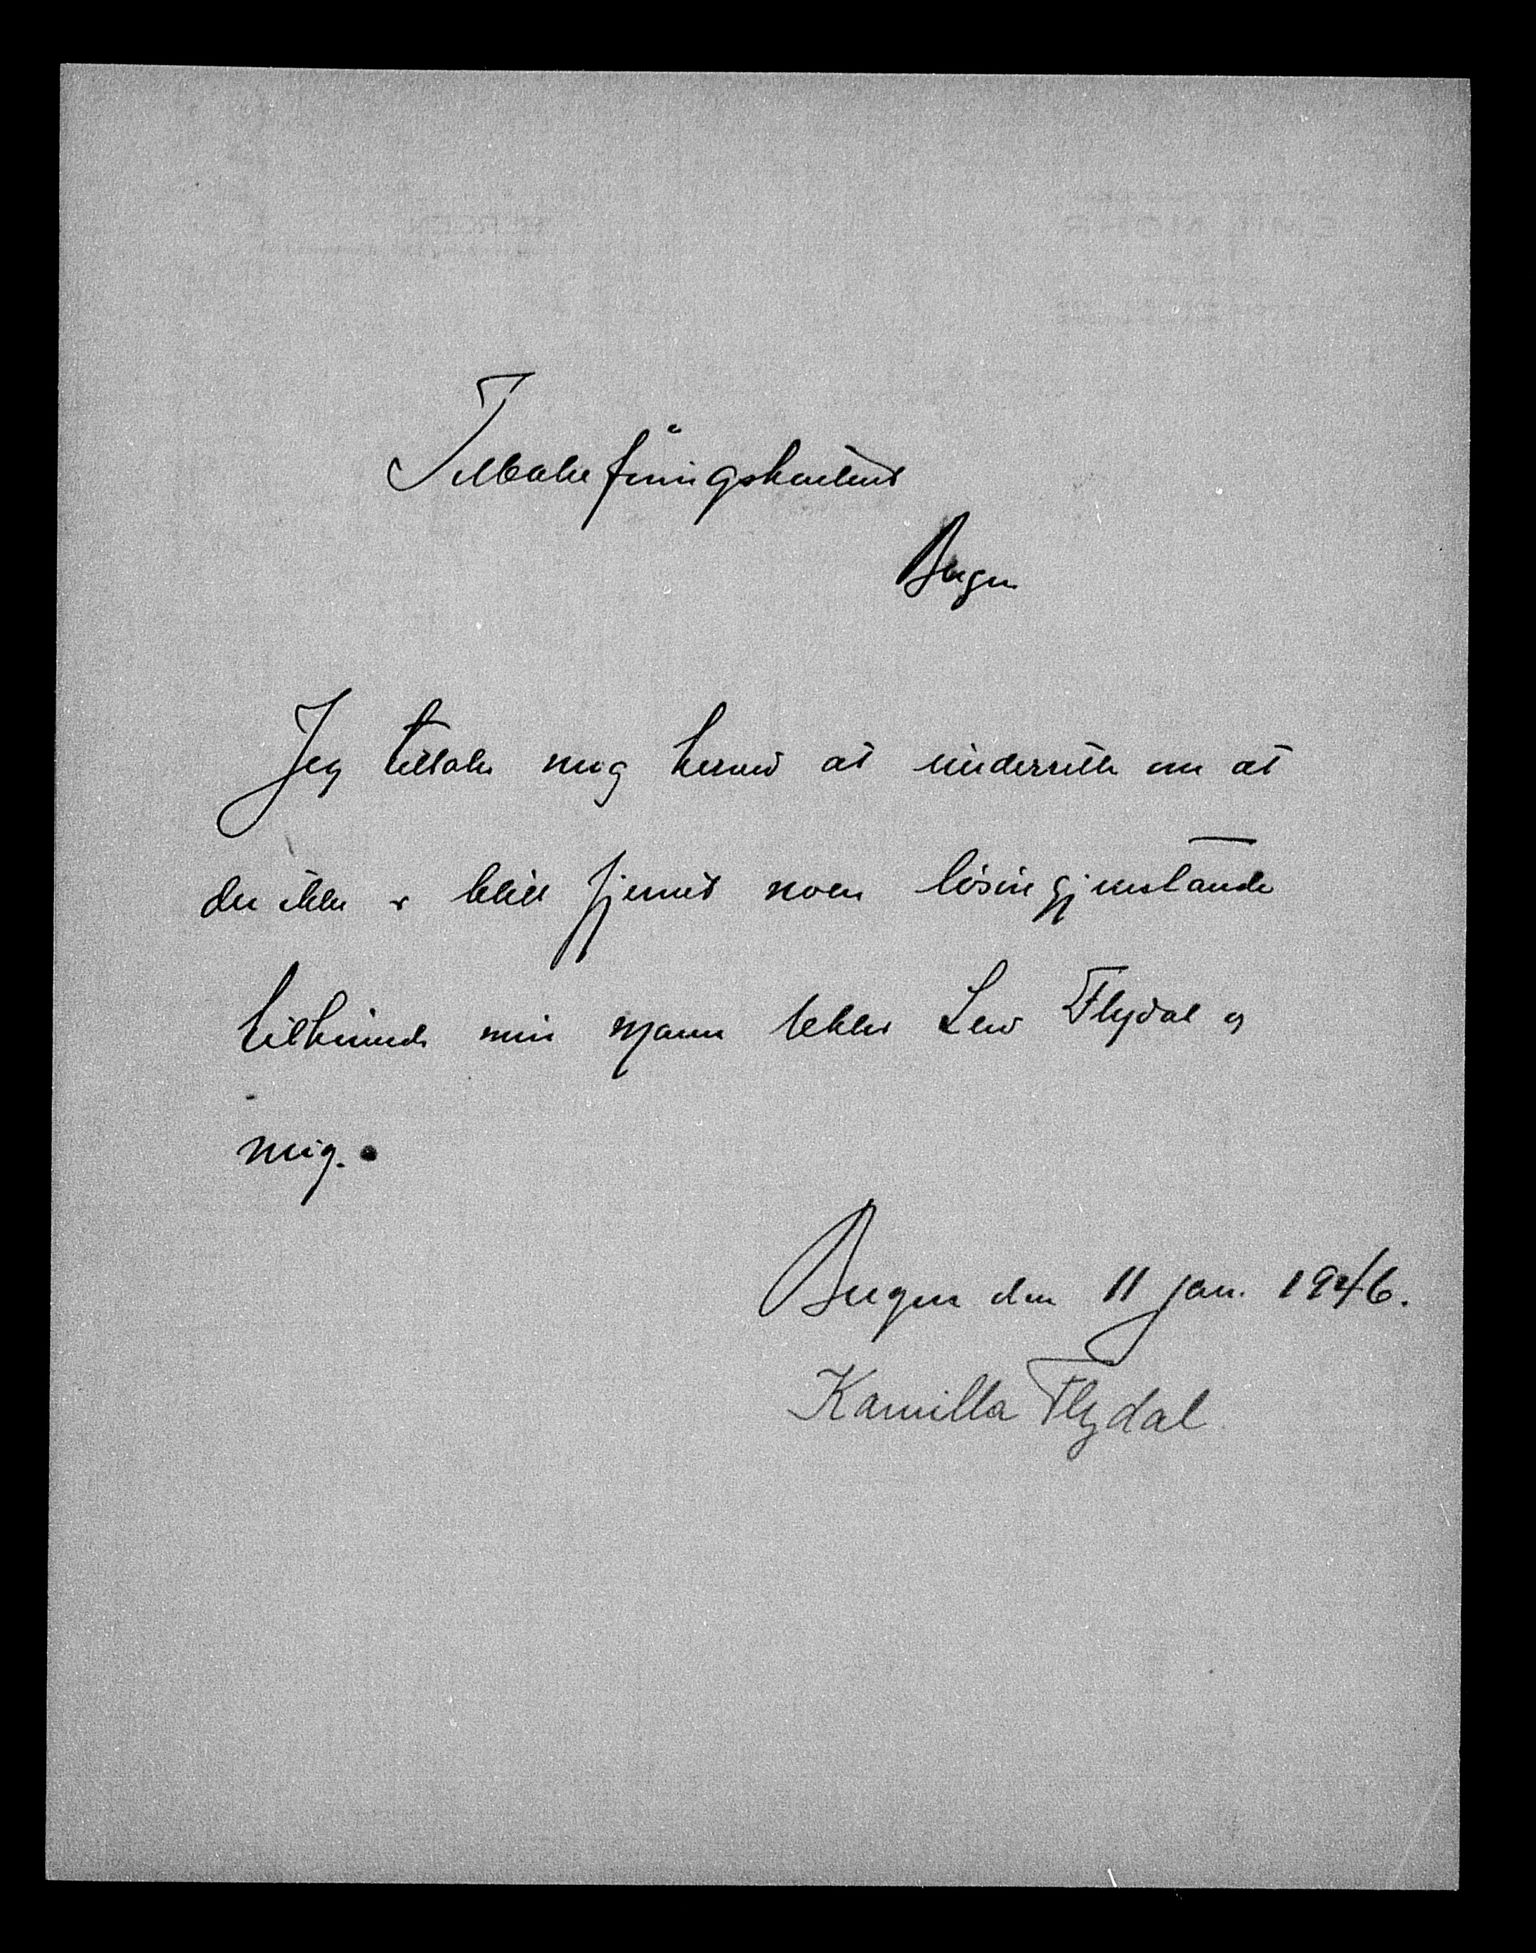 Tilbakeföringskontoret
Bergen
Jeg tillater mig herved at underrette om at
der ikke er blitt fjernet noen lösöregjenstande
tilhörende min mann lektor Leiv Flydal og
mig.
Bergen den 11 jan. 1946.
Kamilla Flydal